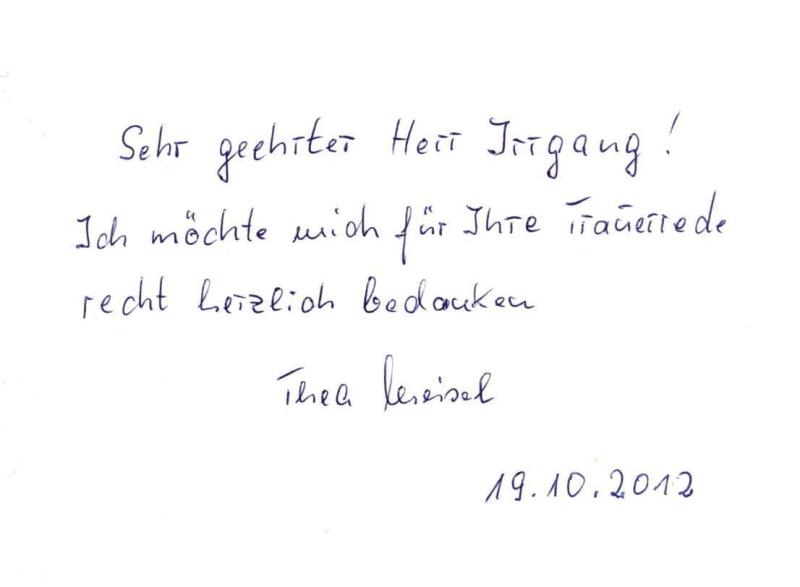 Sehr geehrter Herr Irrgang!
Ich möchte mich für Ihre Trauerrede
recht herzlich bedanken
Thea
19.10.2012